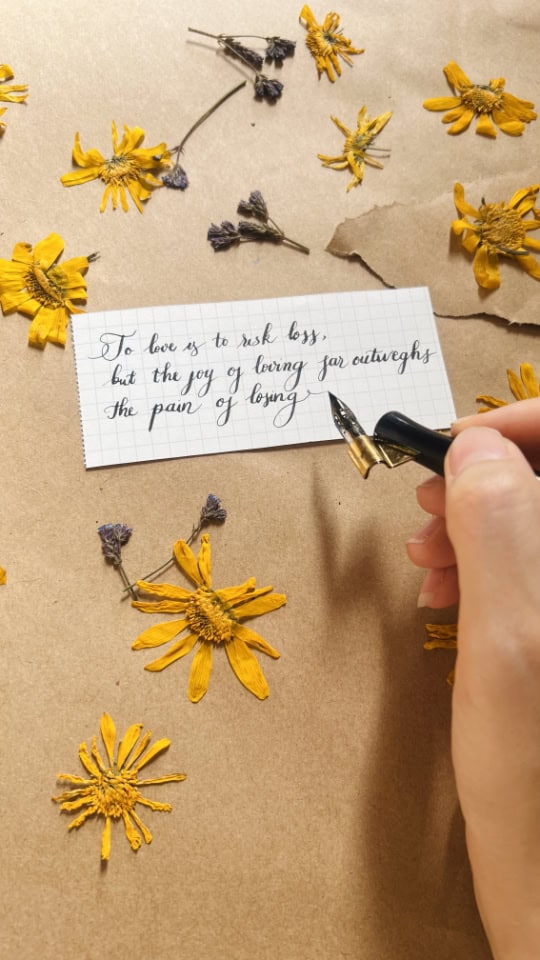 To love is to risk loss,
but the joy of loving far outweghs
the pain of losing